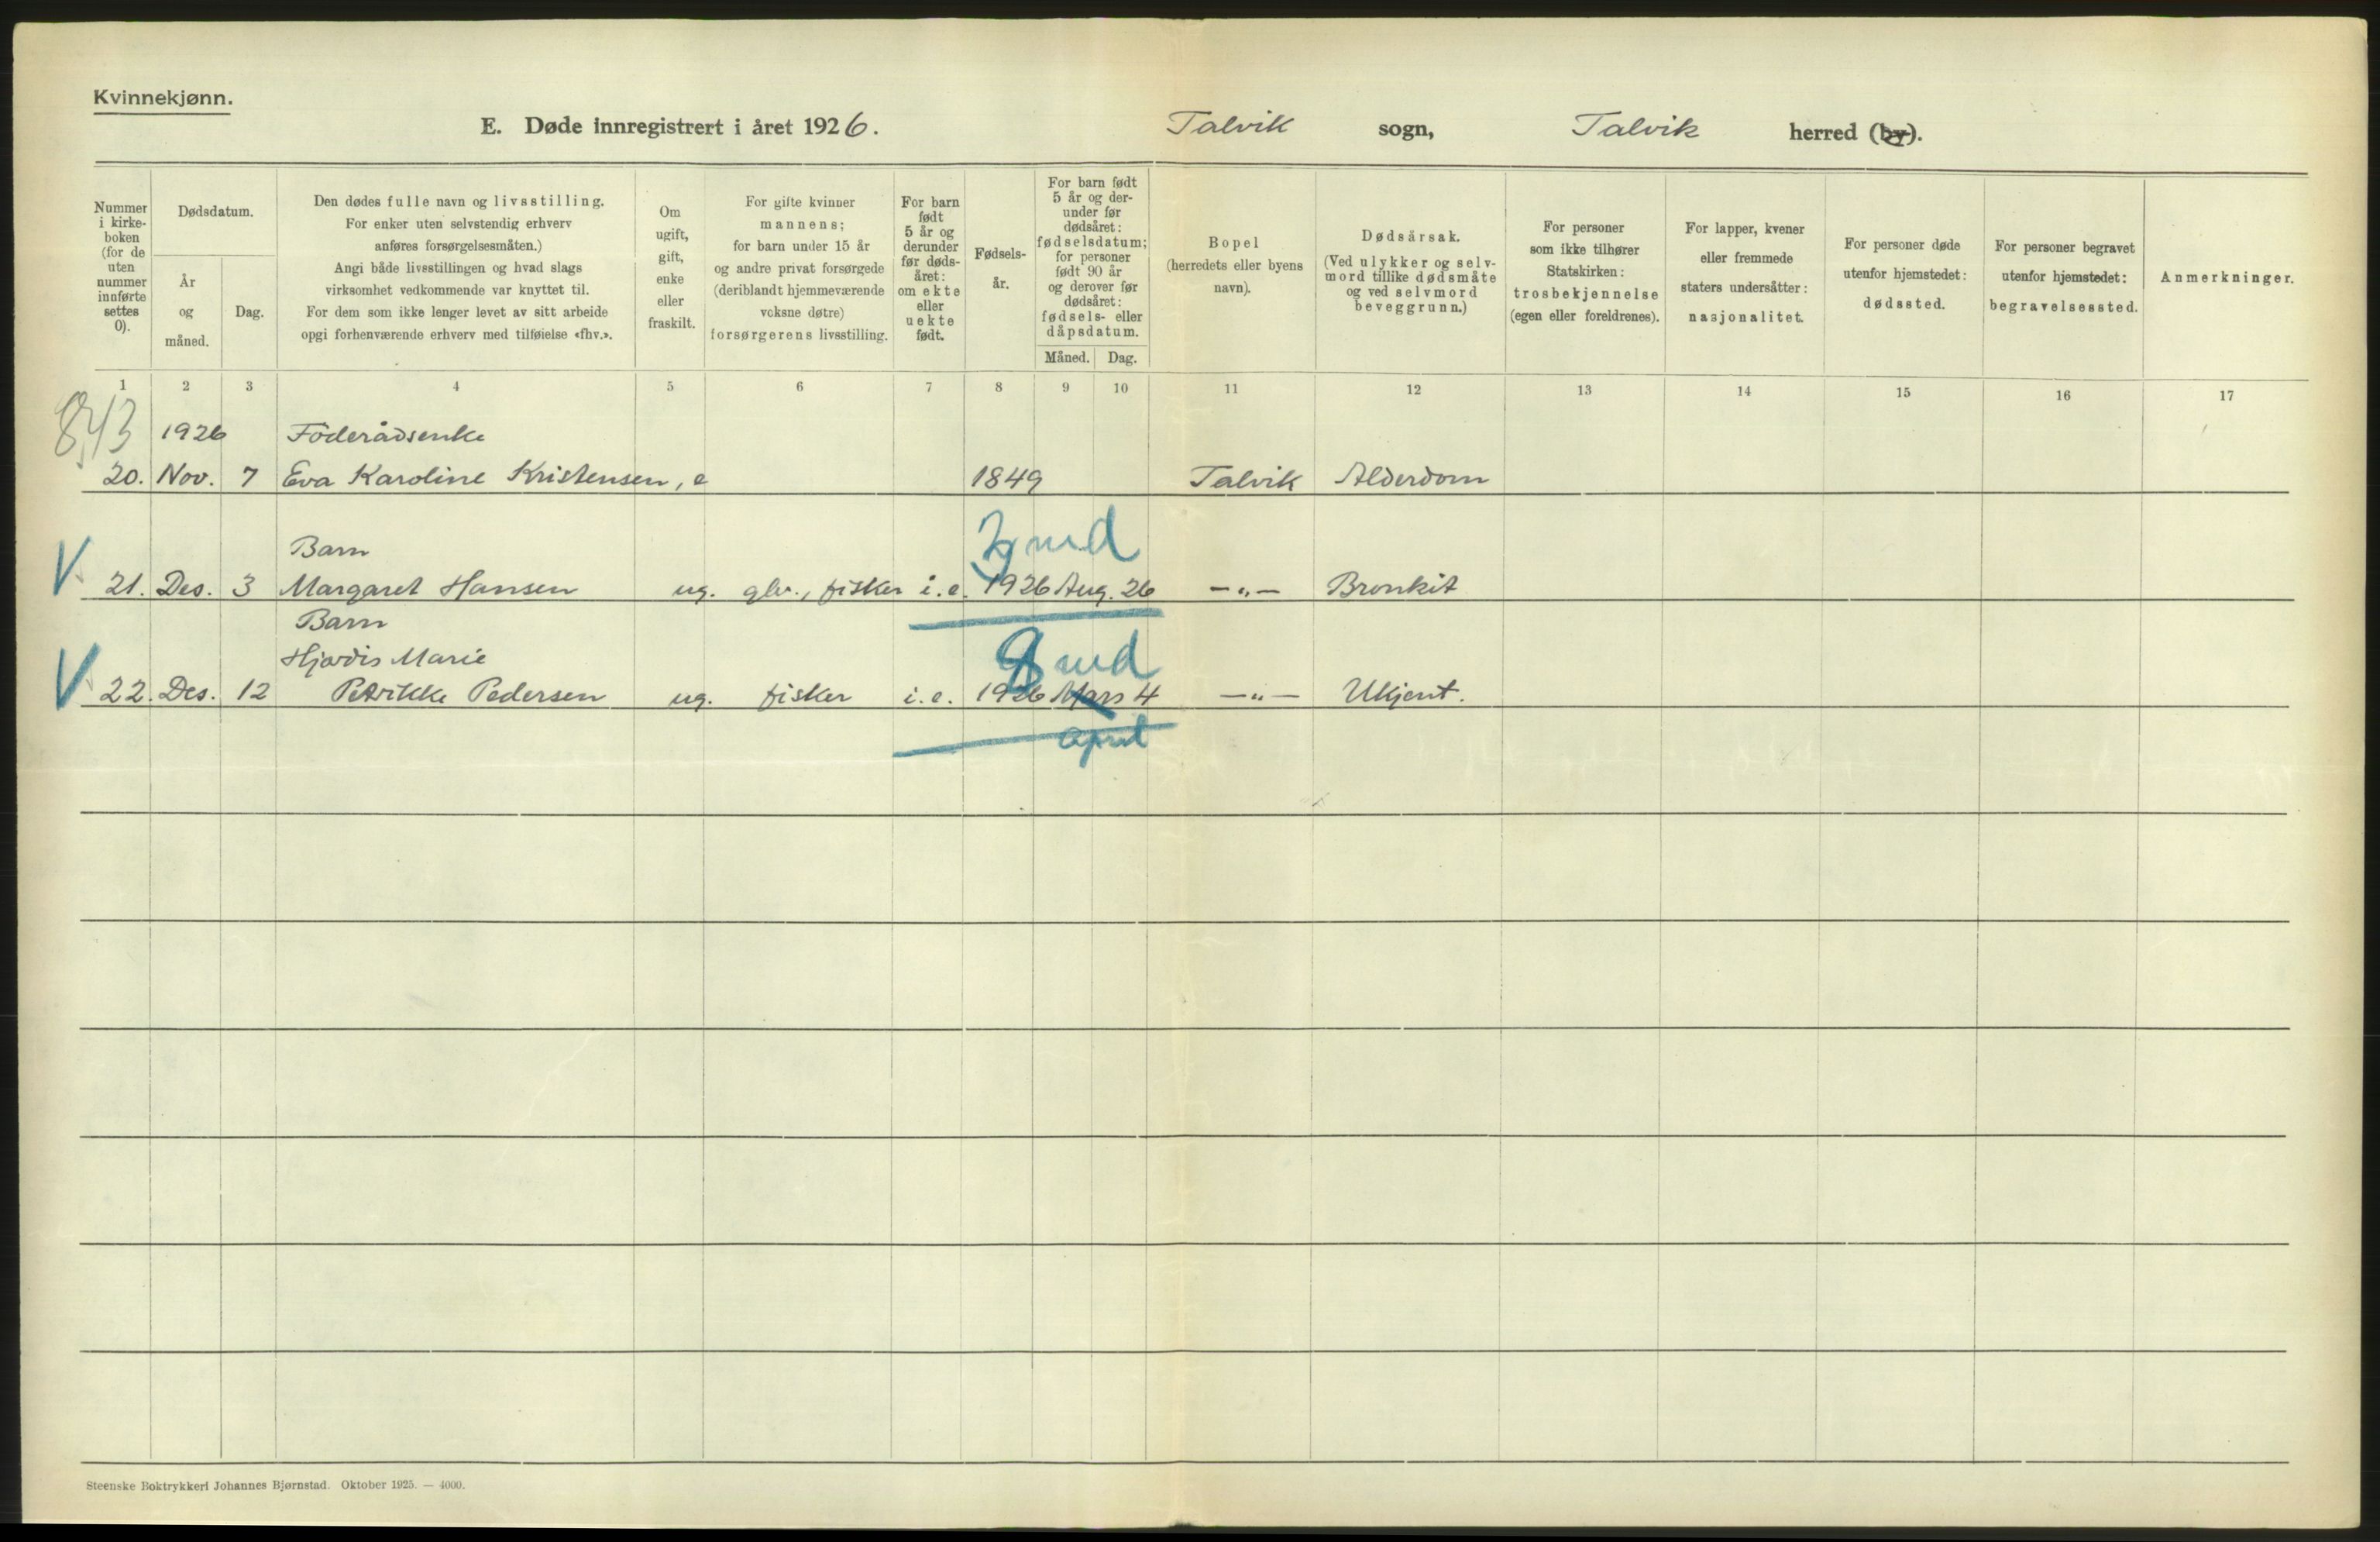 Kvinnekjønn.
E. Døde innregistrert i året 1926. Talvik sogn, Talvik herred (by).
Nummer i kirke-boken (for de uten nummer innførte settes 0).
Dødsdatum.
År og måned.
Dag.
Den dødes fulle navn og livsstilling.
For enker uten selvstendig erhverv
anføres forsørgelsesmåten.)
Angi både livsstillingen og hvad slags
virksomhet vedkommende var knyttet til.
For dem som ikke lenger levet av sitt arbeide
opgi forhenværende erhverv med tilføielse «fhv.».
Om ugift, gift, enke eller fraskilt.
For gifte kvinner
mannens;
for barn under 15 år
og andre privat forsørgede
(deriblandt hjemmeværende
voksne døtre)
forsørgerens livsstilling.
For barn født 5 år og derunder før døds-året: om ekte eller uekte født.
Fødsels-år.
For barn født 5 år og der-under før dødsåret: fødselsdatum; for personer født 90 år og derover før dødsåret: fødsels- eller dåpsdatum.
Måned. Dag.
Bopel
(herredets eller byens
navn).
Dødsårsak.
(Ved ulykker og selv-
mord tillike dødsmåte
og ved selvmord
beveggrunn.)
For personer
som ikke tilhører
Statskirken:
trosbekjennelse
(egen eller foreldrenes).
For lapper, kvener
eller fremmede
staters undersåtter:
nasjonalitet.
For personer døde
utenfor hjemstedet:
dødssted.
For personer begravet
utenfor hjemstedet:
begravelsessted.
Anmerkninger.
1 2 3 4 5 6 7 8 9 10 11 12 13 14 15 16 17
843
1926 Föderådsenke
20. Nov. 7 Eva Karoline Kristensen, e 1849 Talvik Alderdom
Barn 3 md
V 21. Des. 3 Margaret Hansen ug. gbr., fisker i.e. 1926 Aug. 26 —„— Bronkit
Barn
Hjordis Marie 8 md
V 22. Des. 12 Petrikke Pedersen ug. fisker i.e. 1926 Mars 4 —„— Ukjent.
april
Steenske Boktrykkeri Johannes Bjørnstad. Oktober 1925. — 4000.